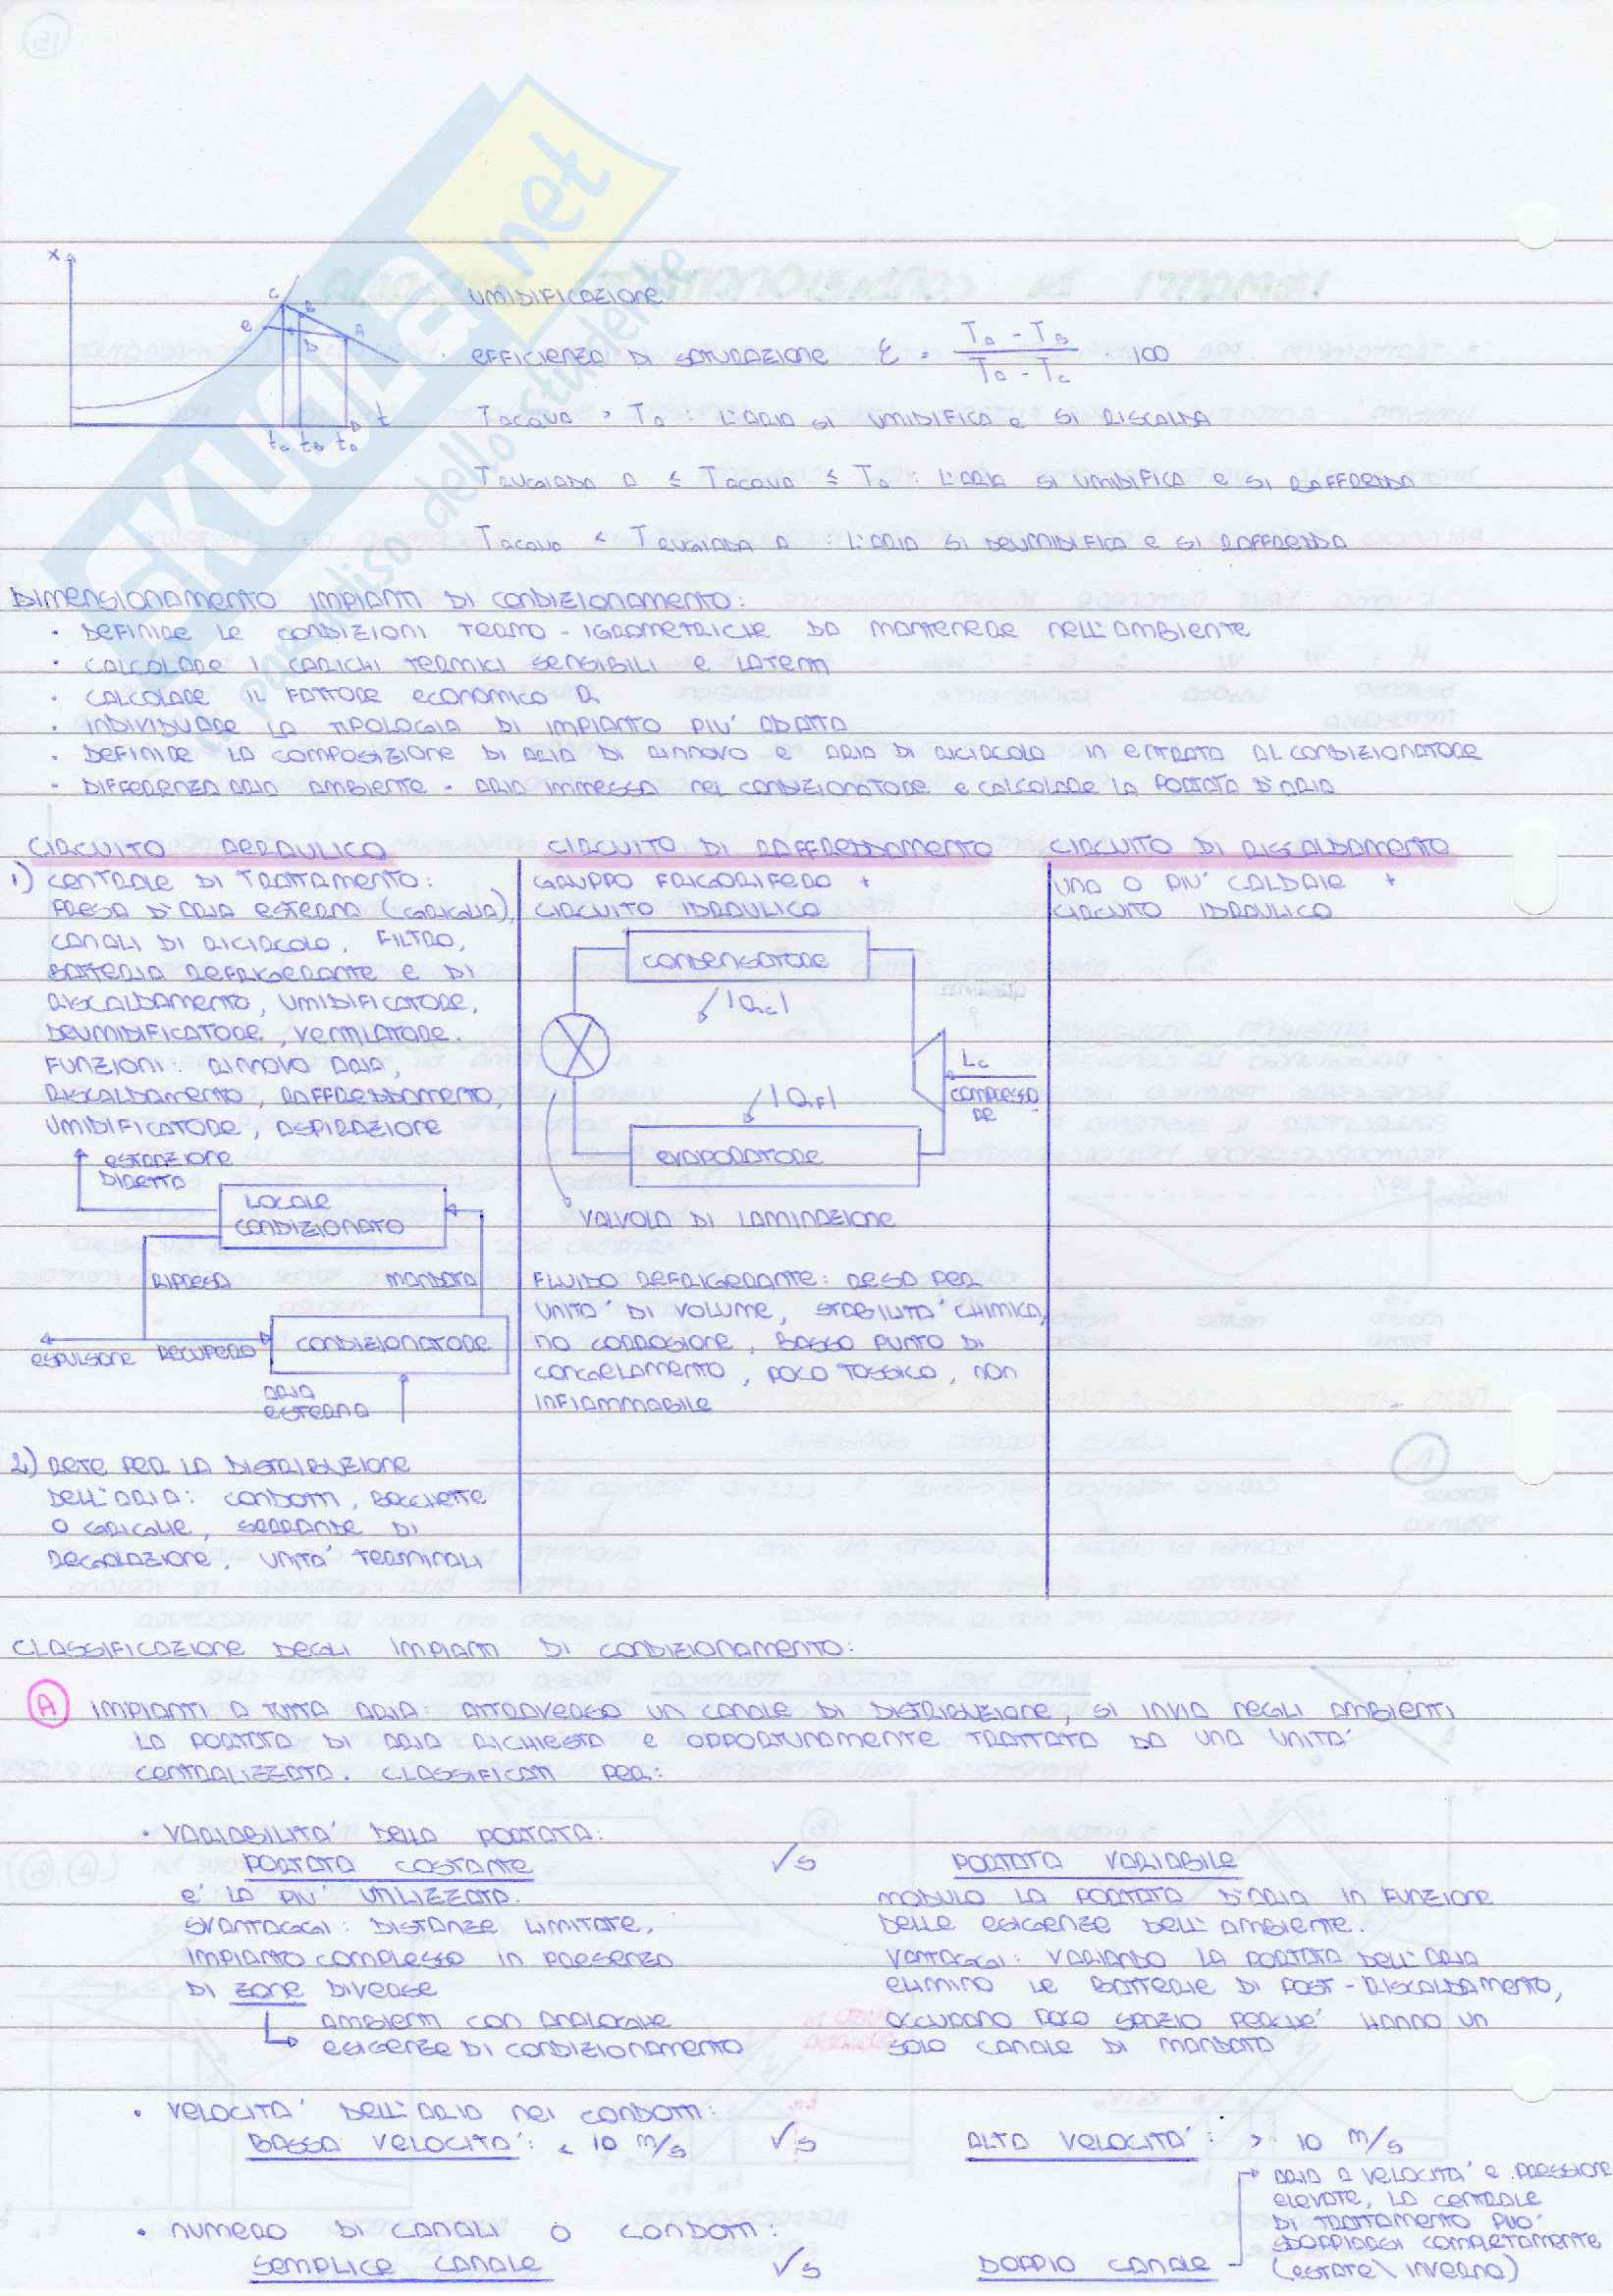 SKUOLA.net
il paradiso dello studente
x
C
B
e
A
D
t
tc tB tA
UMIDIFICAZIONE
· EFFICIENZA DI SATURAZIONE ε = (TA - TB) / (TA - TC) · 100
TACQUA > TA : L'ARIA SI UMIDIFICA E SI RISCALDA
TRUGIADA A ≤ TACQUA ≤ TA : L'ARIA SI UMIDIFICA E SI RAFFREDDA
TACQUA < TRUGIADA A : L'ARIA SI DEUMIDIFICA E SI RAFFREDDA
DIMENSIONAMENTO IMPIANTI DI CONDIZIONAMENTO:
· DEFINIRE LE CONDIZIONI TERMO-IGROMETRICHE DA MANTENERE NELL'AMBIENTE
· CALCOLARE I CARICHI TERMICI SENSIBILI E LATENTI
· CALCOLARE IL FATTORE ECONOMICO R
· INDIVIDUARE LA TIPOLOGIA DI IMPIANTO PIU' ADATTA
· DEFINIRE LA COMPOSIZIONE DI ARIA DI RINNOVO E ARIA DI RICIRCOLO IN ENTRATA AL CONDIZIONATORE
· DIFFERENZA ARIA AMBIENTE - ARIA IMMESSA NEL CONDIZIONATORE E CALCOLARE LA PORTATA D'ARIA
CIRCUITO AERAULICO
1) CENTRALE DI TRATTAMENTO:
PRESA D'ARIA ESTERNA (GRIGLIA),
CANALI DI RICIRCOLO, FILTRO,
BATTERIA REFRIGERANTE E DI
RISCALDAMENTO, UMIDIFICATORE,
DEUMIDIFICATORE, VENTILATORE.
FUNZIONI: RINNOVO ARIA,
RISCALDAMENTO, RAFFREDDAMENTO,
UMIDIFICATORE, ASPIRAZIONE
ESTRAZIONE
DIRETTA
LOCALE
CONDIZIONATO
RIPRESA
MANDATA
ESPULSIONE
RECUPERO
CONDIZIONATORE
ARIA
ESTERNA
2) RETE PER LA DISTRIBUZIONE
DELL'ARIA: CONDOTTI, BOCCHETTE
O GRIGLIE, SERRANDE DI
REGOLAZIONE, UNITA' TERMINALI
CIRCUITO DI RAFFREDDAMENTO
GRUPPO FRIGORIFERO +
CIRCUITO IDRAULICO
CONDENSATORE
|Qc|
Lc
COMPRESSO
RE
|QF|
EVAPORATORE
VALVOLA DI LAMINAZIONE
FLUIDO REFRIGERANTE: RESA PER
UNITA' DI VOLUME, STABILITA' CHIMICA,
NO CORROSIONE, BASSO PUNTO DI
CONGELAMENTO, POCO TOSSICO, NON
INFIAMMABILE
CIRCUITO DI RISCALDAMENTO
UNA O PIU' CALDAIE +
CIRCUITO IDRAULICO
CLASSIFICAZIONE DEGLI IMPIANTI DI CONDIZIONAMENTO:
A IMPIANTI A TUTTA ARIA: ATTRAVERSO UN CANALE DI DISTRIBUZIONE, SI INVIA NEGLI AMBIENTI
LA PORTATA DI ARIA RICHIESTA E OPPORTUNAMENTE TRATTATA DA UNA UNITA'
CENTRALIZZATA. CLASSIFICATI PER:
· VARIABILITA' DELLA PORTATA:
PORTATA COSTANTE VS PORTATA VARIABILE
E' LA PIU' UTILIZZATA.
SVANTAGGI: DISTANZE LIMITATE,
IMPIANTO COMPLESSO IN PRESENZA
DI ZONE DIVERSE
AMBIENTI CON ANALOGHE
ESIGENZE DI CONDIZIONAMENTO
MODULO LA PORTATA D'ARIA IN FUNZIONE
DELLE ESIGENZE DELL'AMBIENTE.
VANTAGGI: VARIANDO LA PORTATA DELL'ARIA
ELIMINO LE BATTERIE DI POST-RISCALDAMENTO,
OCCUPANO POCO SPAZIO PERCHE' HANNO UN
SOLO CANALE DI MANDATA
· VELOCITA' DELL'ARIA NEI CONDOTTI:
BASSA VELOCITA': < 10 m/s VS ALTA VELOCITA': > 10 m/s
· NUMERO DI CANALI O CONDOTTI:
SEMPLICE CANALE VS DOPPIO CANALE
ARIA A VELOCITA' E PRESSIONE
ELEVATE, LA CENTRALE
DI TRATTAMENTO PUO'
SDOPPIARSI COMPLETAMENTE
(ESTATE \ INVERNO)